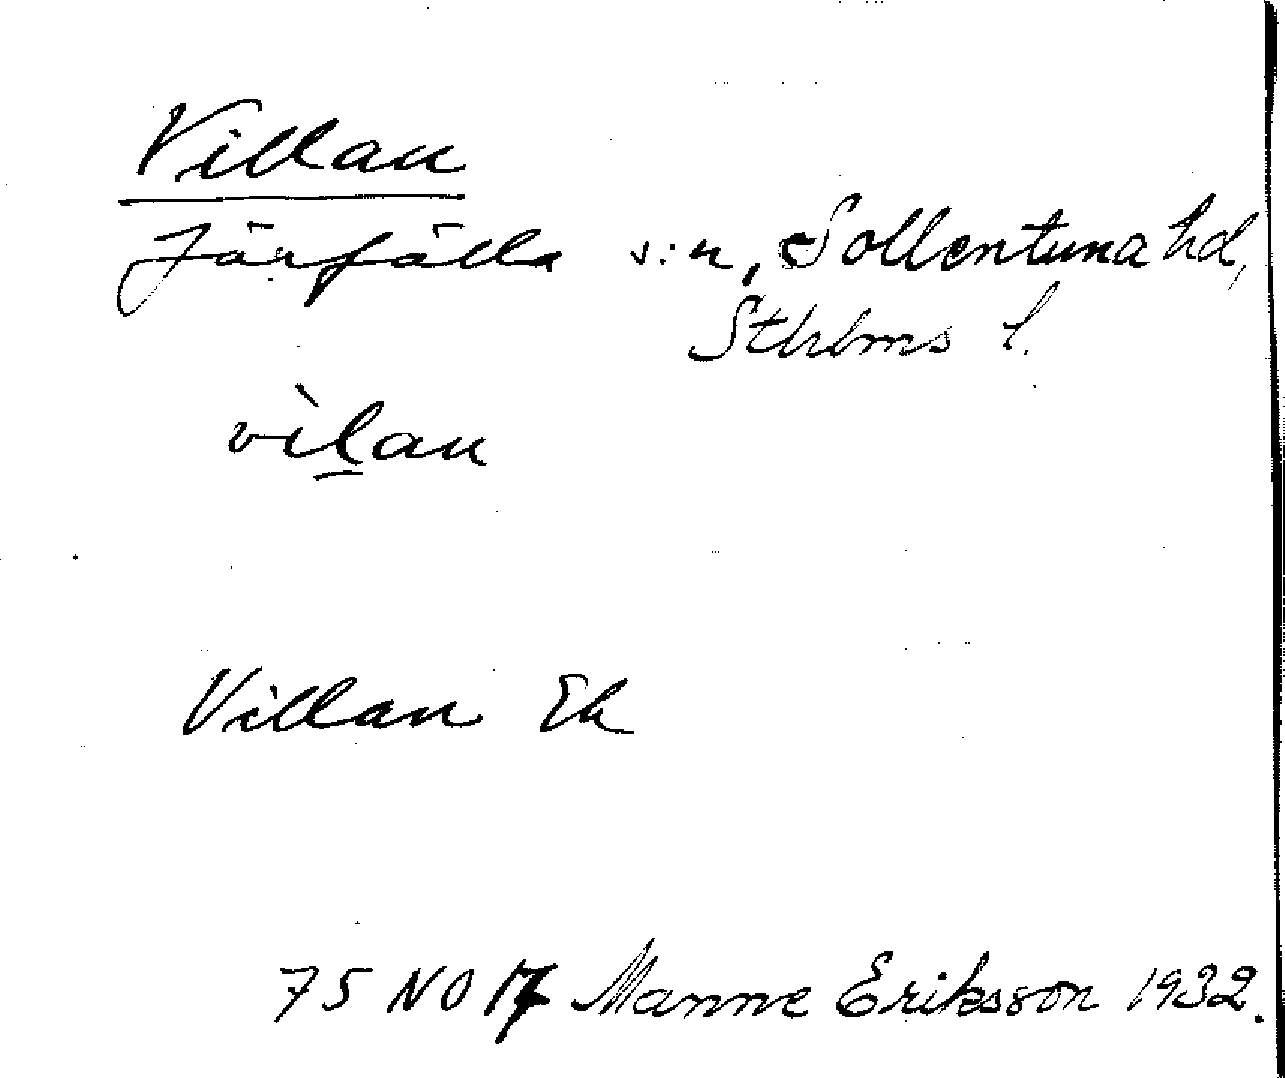 Villan
Järfälla s:n, Sollentuna hd,
Sthlms l.
vìl̲an
Villan Ek
75 NO 17 Manne Eriksson 1932.